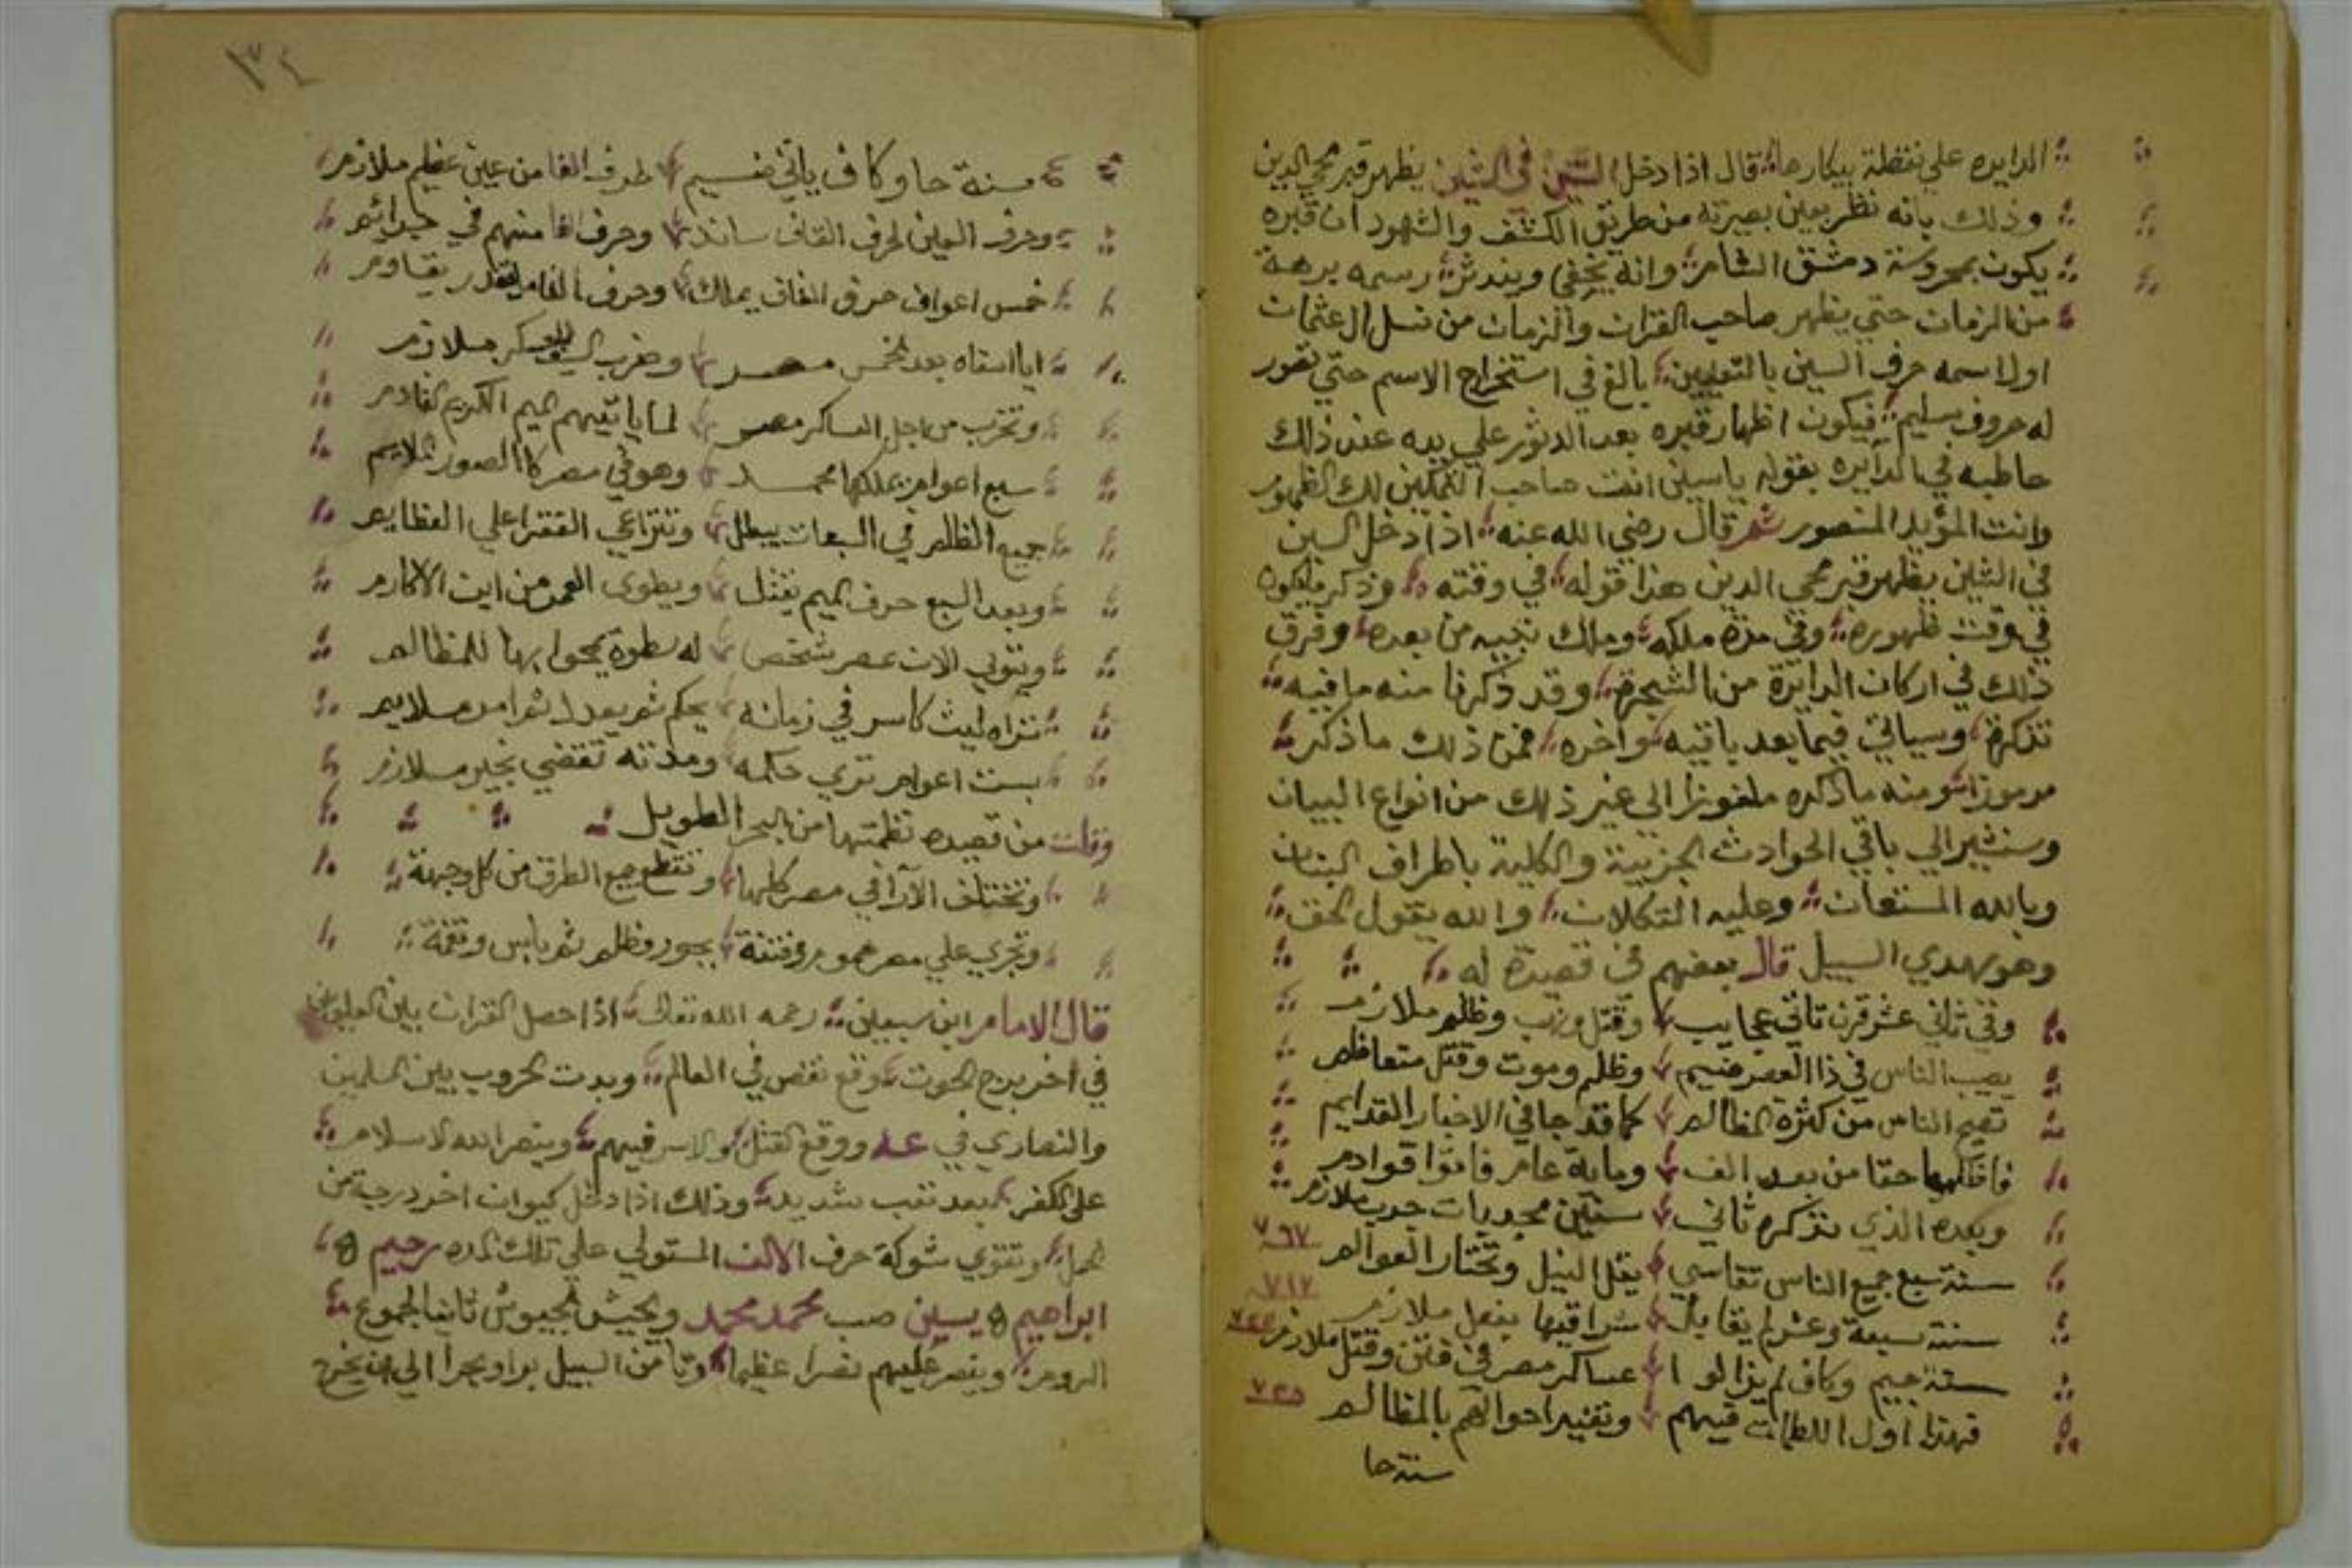 الدايره علي نقطة بيكارها قال اذا دخل السين في الشين يظهر قبر محي الدين
وذلك بانه نظر بعين بصيرته من طريق الكشف والشهود ان قبره
يكون بمحروسة دمشق الشام وانه يخفي ويندثر رسمه برهة
من الزمان حتي يظهر صاحب القران والزمان من نسل ال عثمان
اول اسمه حرف السين بالتعيين بالغ في استخراج الاسم حتي تقور
له حروف سليم فيكون اظهار قبره بعد الدثور علي يده عند ذلك
خاطبه في الدايره بقوله ياسين انت صاحب التمكين لك الظهور
وانت المؤيد المنصور ثم قال رضي الله عنه اذا دخل السين
في الشين يظهر قبر محي الدين هذا قوله في وقته وذكر ما يكون
في وقت ظهوره وفي مدة ملكه وملك بنيه من بعده وفرق
ذلك في اركان الدايرة من الشجرة وقد ذكرنا منه ما فيه
تذكرة وسياتي فيما بعد باقيه واخره فمن ذلك ما ذكره
مرموزا ومنه ما ذكره ملغوزا الي غير ذلك من انواع البيان
وسنشير الي باقي الحوادث الجزيية والكلية باطراف البنان
وبالله المستعان وعليه التكلان والله يقول الحق
وهو يهدي السبيل قال بعضهم في قصيدة له
وفي ثاني عشر قرن تاتي عجايب وقتل وظلم ملازم
يصيب الناس في ذا العصر ضيم وظلم وموت وقتل متعاظم
تصيح الناس من كثرة المظالم كما قد جا في الاخبار القدايم
حقا من بعد الف وماية عام فاتوا قوادم
وبعده الذي نذكره ثاني سنين مجدبات جدب ملازم
سنة سبع جميع الناس تقاسي يقل النيل وتحتار العوالم ٧٦٧
سنة سبعة وعشر يقابل شراقيها بفعل ملازم ٧١٧
سنة جيم وكاف لم يزالوا عساكر مصر في فتن وقتل ملازم
فهذا اول اللطمات فيهم وتغير احوالهم بالمظالم
سنة حا
٣٤
سنة حا وكاف ياتي ضيم لحرف الفا من عين عظيم ملازم
وحرف العين لحرف القاف ساند وحرف الفا منهم في جرائم
خمس اعوام حرف القاف يملك وحرف الفا يقاوم
بعد الخمس مصر ملازم
وتخرب من اجل العساكر مصر لما ياتيهم الميم الكريم القادم
سبع اعوام يملكها محمد وهو في مصر كالصور الملايم
جميع الظلم في السبعات يبطل وتتراعي الفقرا علي العظايم
وبعد السبع حرف الميم يقتل ويطوى العمر من ابن الاكارم
ويتولي الان عصر شخص له سطوة يمحوا بها للمظالم
تراه ليث كاسر في زمانه يحكم ثم بعد ملايم
بست اعوام تري حكمه ومدته تقضي بخير ملازم
وقلت من قصيده نظمتها من البحر الطويل
وتختلف الآرا في مصر كلها وتنقطع جميع الطرق من كل وجهة
وتجري علي مصر هموم وفتنة بجور وظلم ثم باس ونقمة
قال الامام ابن سبعين رحمه الله تعالى اذا حصل القران بين العلويين
في اخر برج الحوت وقع نقص في العالم وبدت الحروب بين المسلمين
والنصاري في ووقع القتل والاسر فيهم وينصر الله الاسلام
علي الكفر بعد تعب شديد وذلك اذا دخل كيوان اخر درجة من
الحمل وتقوي شوكة حرف الالف المستولي علي تلك المده رحيم
ابراهيم يسين صب محمد محمد ويجيش الجيوش ثانيا لجموع
الروم وينصر عليهم نصرا عظيما ويامن السبيل برا وبحرا الي ان يخرج